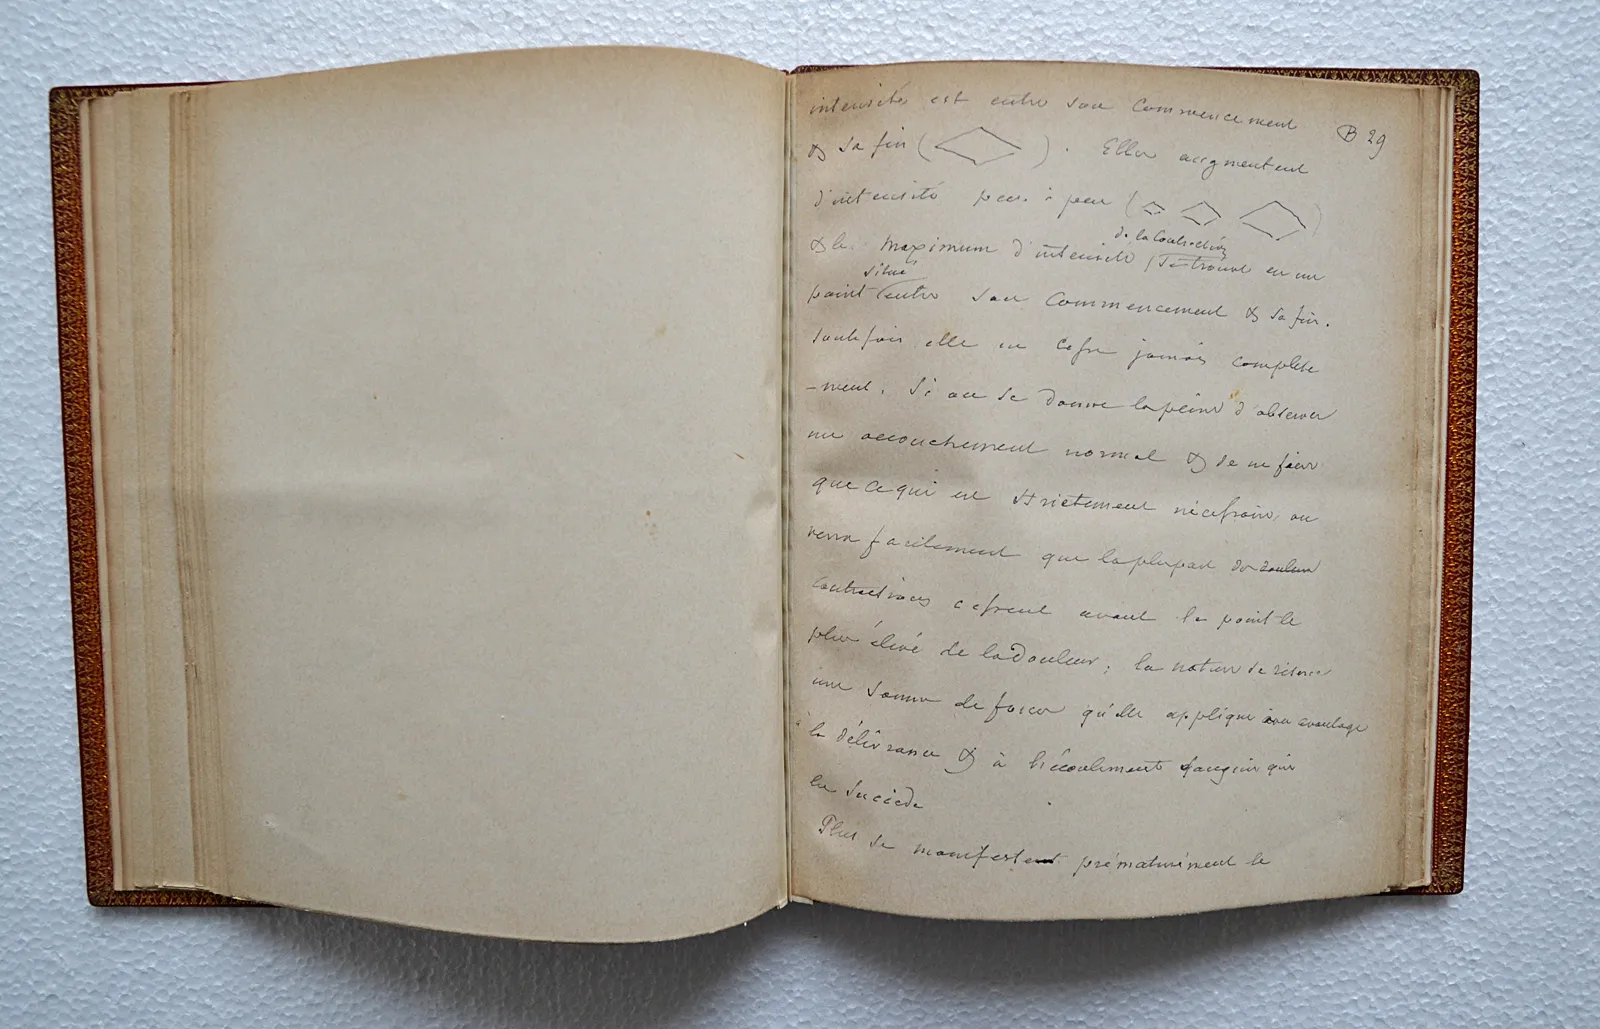 intensité est entre son commencement
& sa fin ( ). Elles augmentent
B 29
d'intensité peu à peu ( )
de la contraction
& le maximum d'intensité se trouve en un
situé
point entre son commencement & sa fin.
toutefois elle ne cesse jamais complète
-ment. Si on se donne la peine d'observer
un accouchement normal & de ne faire
que ce qui est strictement nécessaire, on
verra facilement que la plupart des douleurs
contractions cessent avant le point le
plus élevé de la douleur; la nature se réserve
une somme de forces qu'elle applique avantage
la délivrance & à l'écoulement sanguin qui
lui succède
Plus se manifestent prématurément le